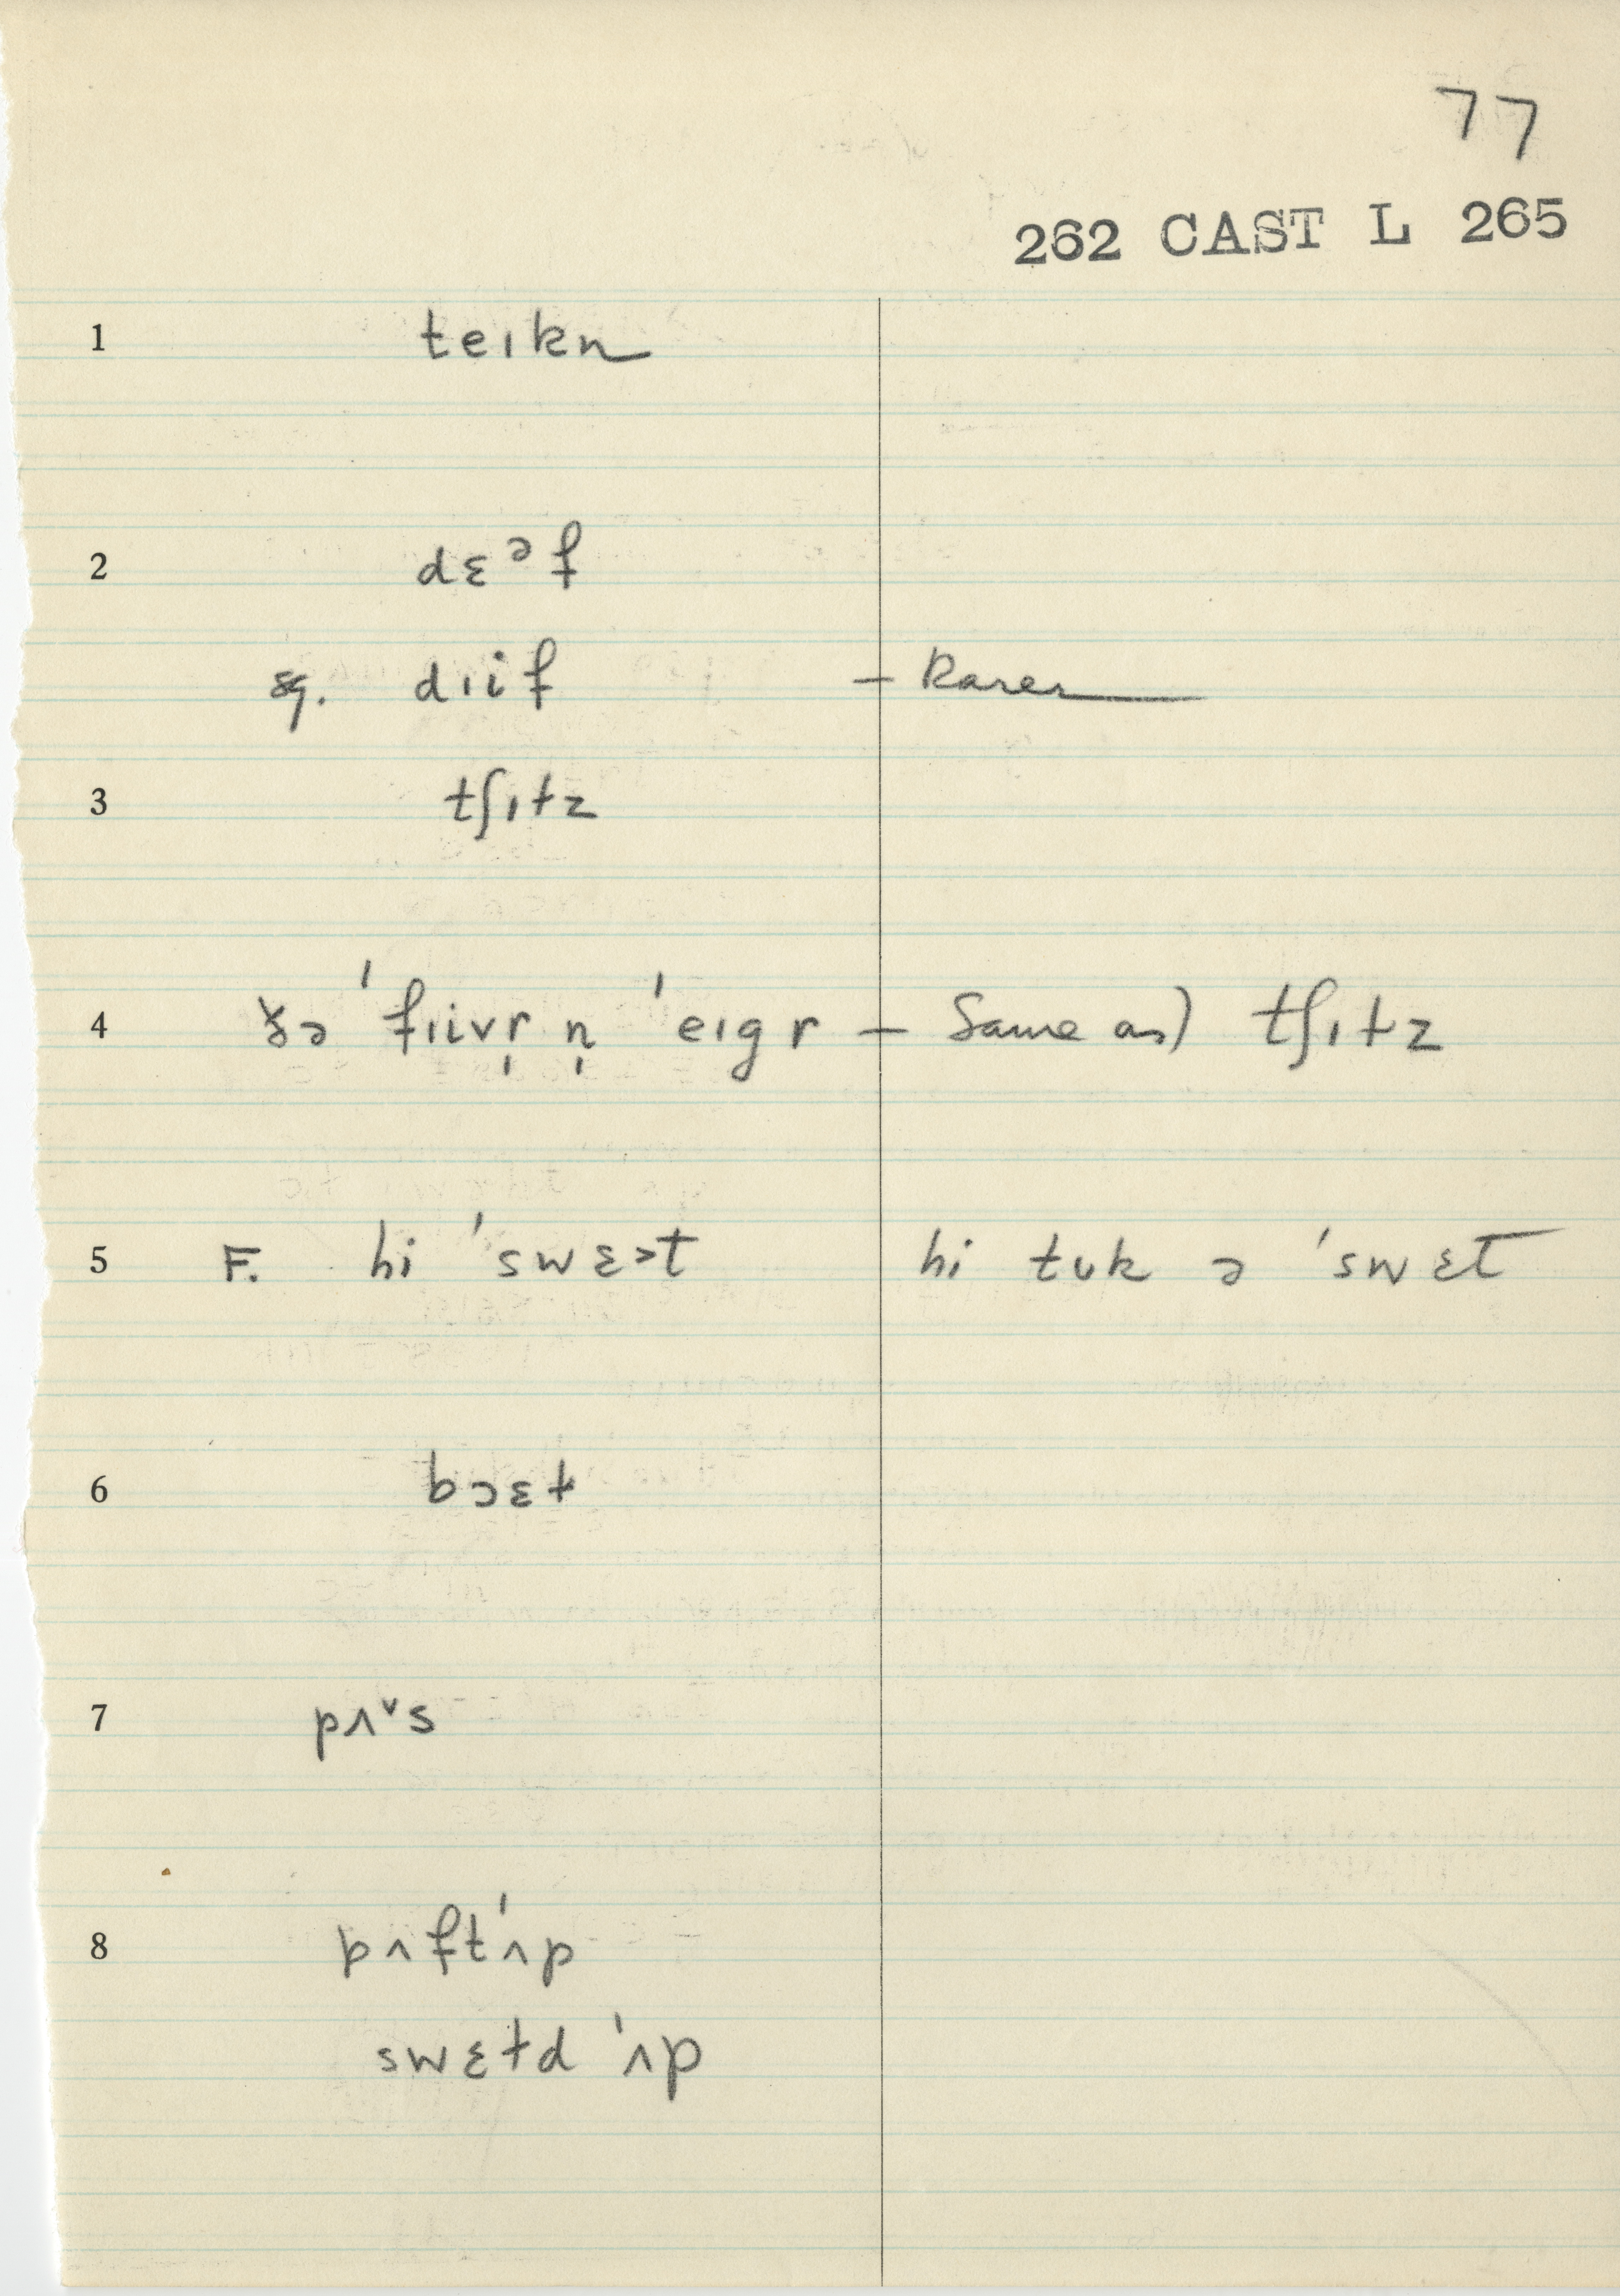 77
262 CAST L 265
1 teɪkn
2 dɛᵊf
sg. dɪif – Rarer
3 tʃɪtz
4 ðə ˈfɪivr̩ n̩ ˈeɪgr – Same as) tʃɪtz
5 F. hi ˈswɛ>t hi tʊk ə ˈswɛt
6 bɔɛt
7 pʌ˅s
8 pʌftˈʌp
swɛtd ˈʌp